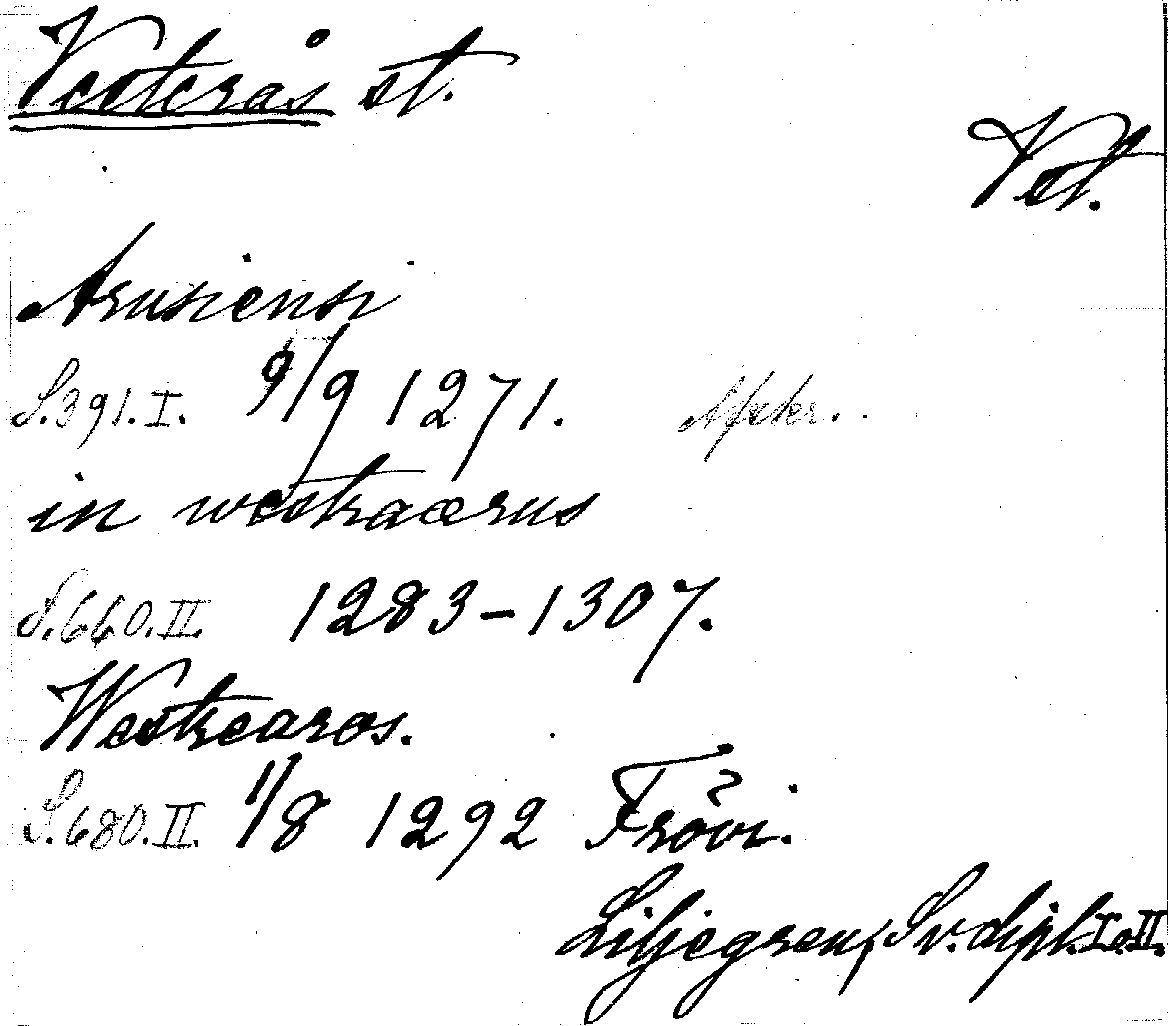 Vesterås st.
Vst.
Arusiensi
S.391.I. 9/9 1271.
in westraærus
S.660.II. 1283-1307.
Westrearos.
S.680.II. 1/8 1292 Frövi.
Liljegren, Sv. dipl. I. II.